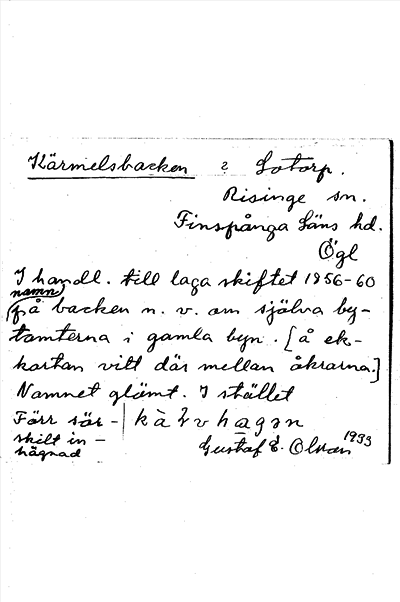 Kärmelsbacken ? Lotorp.
Risinge sn.
Finspånga läns hd.
Ögl
I handl. till laga skiftet 1856-60
namn
på backen n. v. om själva by-
tomterna i gamla byn. [å ek-
kartan vitt där mellan åkrarna.]
Namnet glömt. I stället
Förr sär- | kàlvhagen
skilt in-
hägnad
Gustaf E. Olson 1933